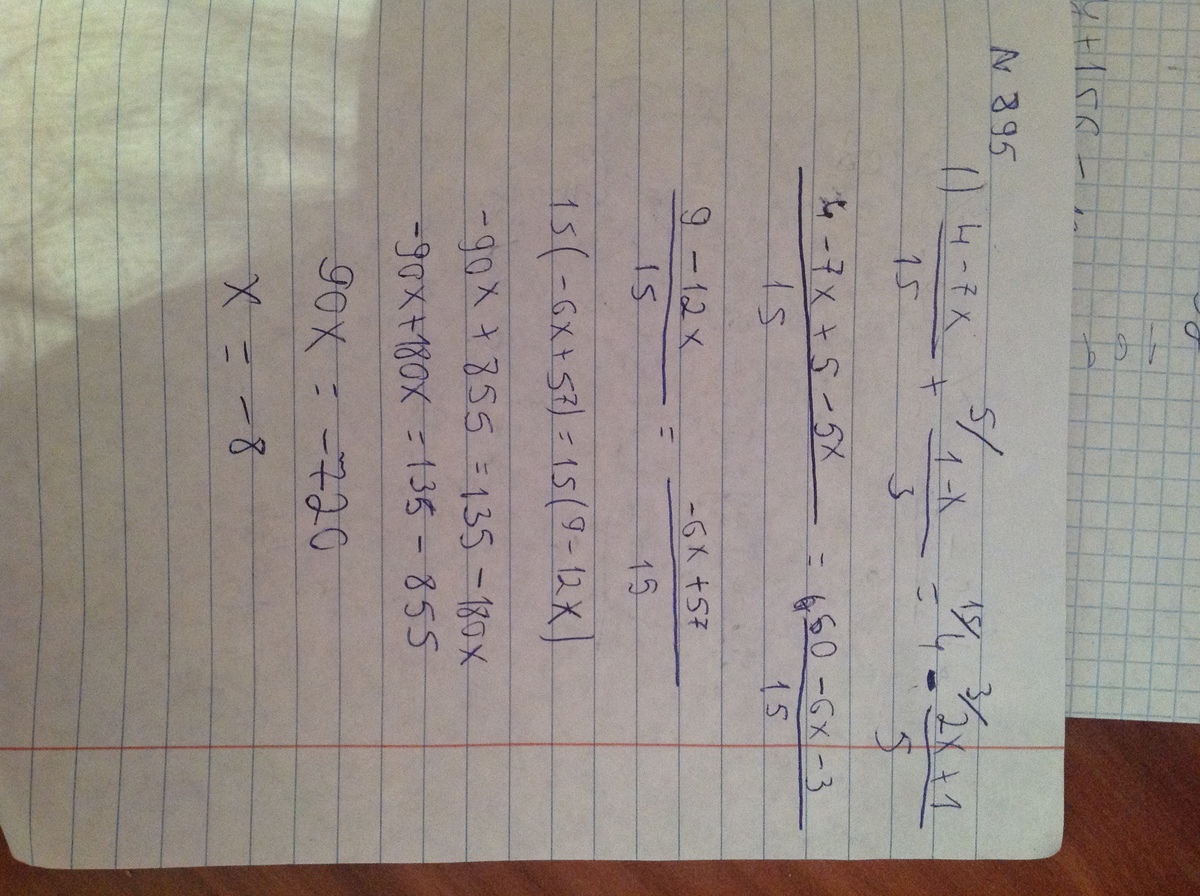 N 895
1) (4-7x)/15 + 5/ (1-x)/3 = 15/ 4 - 3/ (2x+1)/5
(4-7x+5-5x)/15 = (60-6x-3)/15
(9-12x)/15 = (-6x+57)/15
15(-6x+57)=15(9-12x)
-90x+855=135-180x
-90x+180x=135-855
90x=-720
x=-8